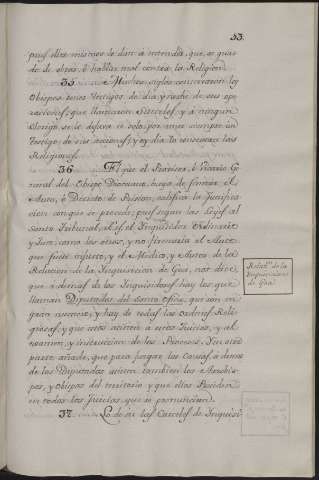 53.
pues ellos mismos se dan à entender, que se guarde de obrar, ò hablar mal contra la Religion.
35. Muchos siglos conservaron los
Obispos unos Testigos de dia, y noche de sus ope-
raciones, que llamaron Sincelos, y à ningun
Clerigo se le dejava ir solo, por tener siempre un
Testigo de sus acciones, y oy dia lo observan las
Religiones.
36. El que el Provisor, ò Vicario Ge-
neral del Obispo Diocesano, haya de firmar el
Auto, ò Decreto de Prision, califica la Justifica-
cion con que se procede, pues segun las Leyes del
Santo Tribunal, es el Inquisidor Ordinario
y Juez como los otros, y no firmaria el Auto
que fuese injusto, y el Medico, y Autor de la
Relacion de la Inquisicion de Goa, nos dice,
que ademas de los Inquisidores hay los que
llaman Diputados del Santo Oficio, que son en
gran numero, y hay de todas las Ordenes Reli-
giosas, y que estos asisten à estos Juicios, y al
examen, y instruccion de los Procesos. Y en otra
parte añade, que para juzgar las Causas, à demas
de los Diputados asisten tambien los Arzobis-
pos, y Obispos del territorio, y que ellos Presiden
en todos los Juicios que se pronuncian.
37. Lo de ser las Carceles de Inquisi-
Relaz.n de la
Inquisicion
de Goa